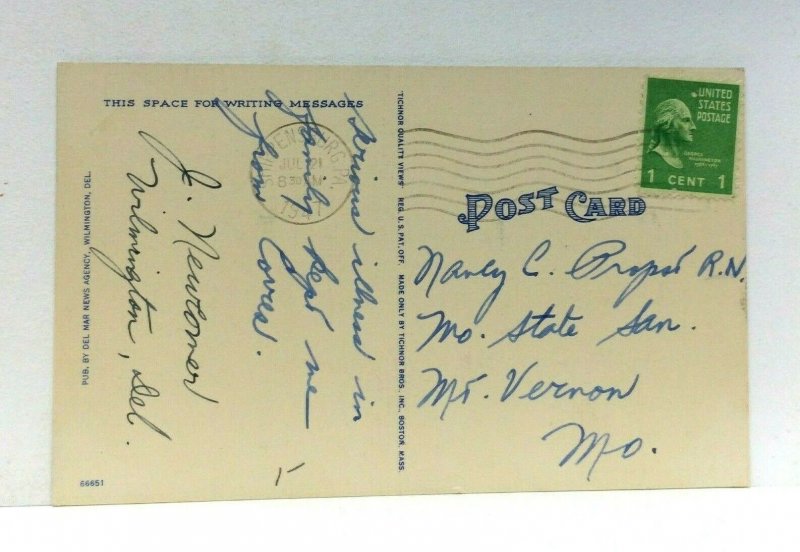 THIS SPACE FOR WRITING MESSAGES
Serious illness in
family kept me
from Covers.
J. Newcomer
Wilmington, Del.
PUB. BY DEL MAR NEWS AGENCY, WILMINGTON, DEL.
66651
"TICHNOR QUALITY VIEWS" REG. U. S. PAT. OFF. MADE ONLY BY TICHNOR BROS., INC., BOSTON, MASS.
JUL 21
8 30 M
UNITED
STATES
POSTAGE
GEORGE
WASHINGTON
1 CENT 1
POST CARD
Nancy C. Propst R.N.
Mo. State San.
Mt. Vernon
Mo.